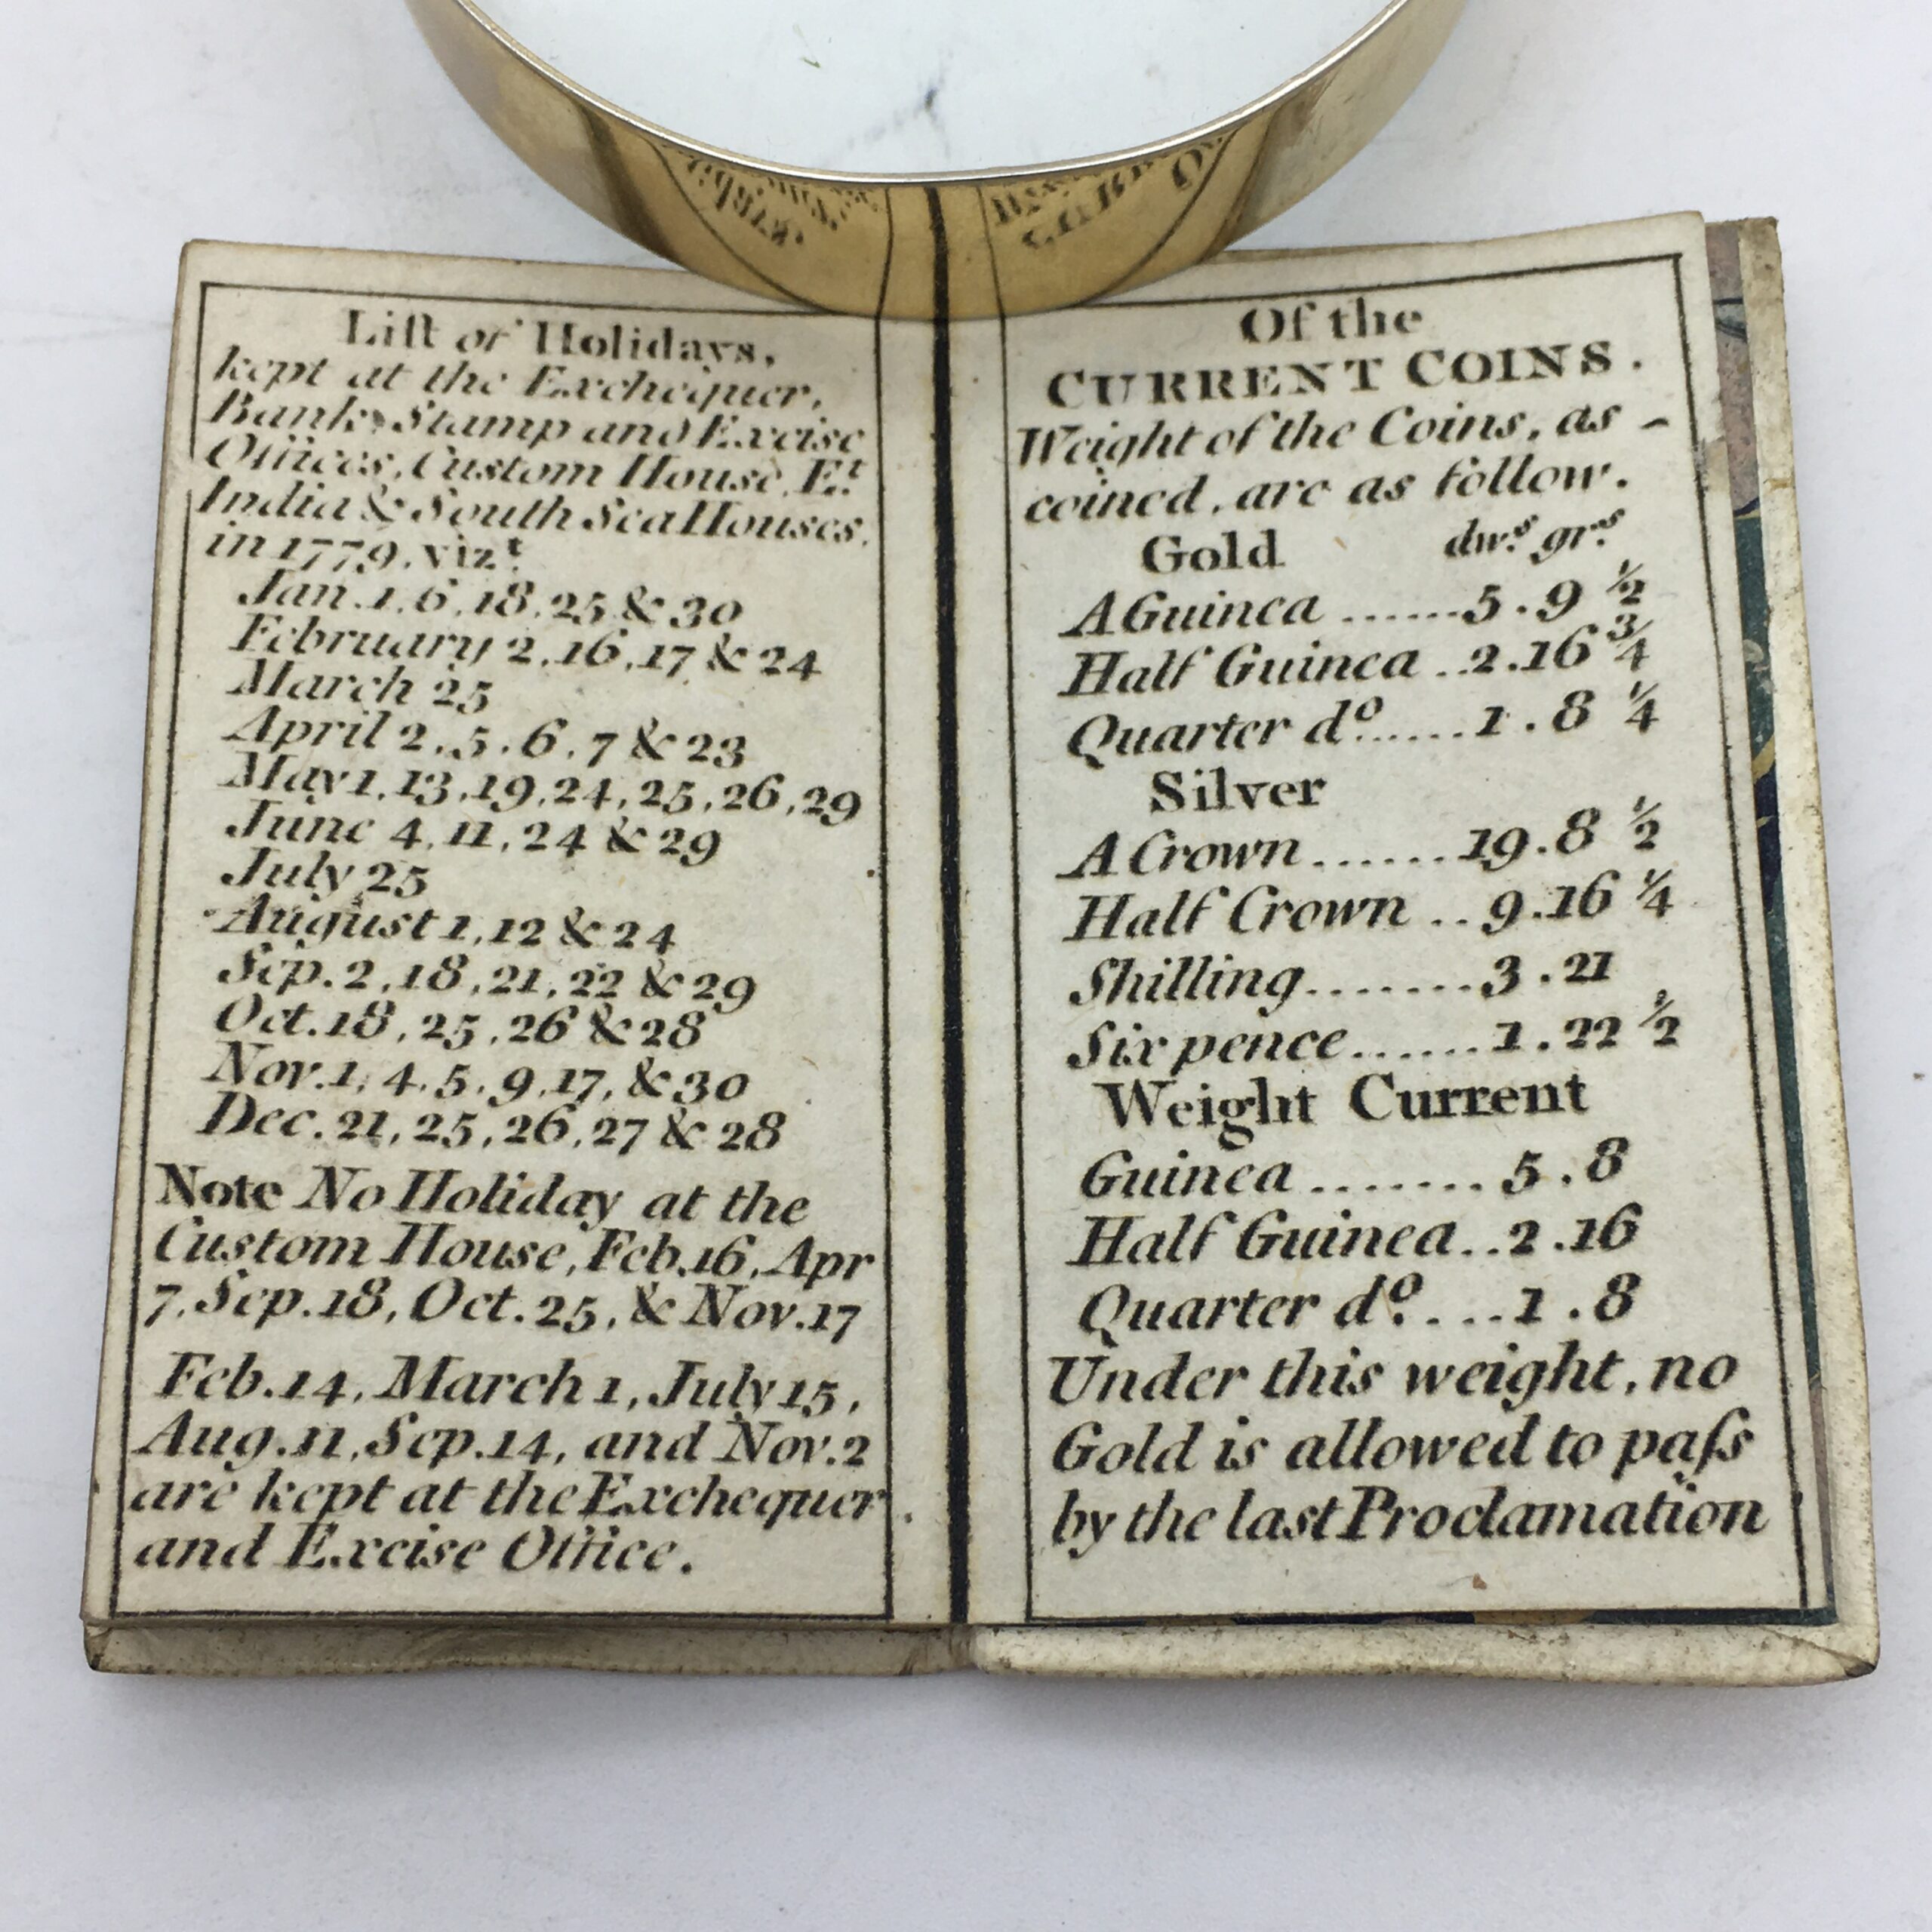 Liſt of Holidays,
kept at the Exchequer,
Bank, Stamp and Excise
Offices, Custom House, Et.
India & South Sea Houses,
in 1779. vizt.
Jan. 1, 6, 18, 25 & 30
February 2, 16, 17 & 24
March 25
April 2, 5, 6, 7 & 23
May 1, 13, 19, 24, 25, 26, 29
June 4, 11, 24 & 29
July 25
August 1, 12 & 24
Sep. 2, 18, 21, 22 & 29
Oct. 18, 25, 26 & 28
Nov. 1, 4, 5, 9, 17, & 30
Dec. 21, 25, 26, 27 & 28
Note No Holiday at the
Custom House, Feb. 16, Apr
7, Sep. 18, Oct. 25, & Nov. 17
Feb. 14, March 1, July 15,
Aug. 11, Sep. 14, and Nov. 2
are kept at the Exchequer
and Excise Office.
Of the
CURRENT COINS.
Weight of the Coins, as -
coined, are as follow.
Gold dwts. grs.
A Guinea ...... 5 . 9 ½
Half Guinea .. 2 . 16 ¾
Quarter do. ..... 1 . 8 ¼
Silver
A Crown ....... 19 . 8 ½
Half Crown .. 9 . 16 ¼
Shilling ........ 3 . 21
Six pence ....... 1 . 22 ½
Weight Current
Guinea ........ 5 . 8
Half Guinea .. 2 . 16
Quarter do. ... 1 . 8
Under this weight, no
Gold is allowed to paſs
by the last Proclamation